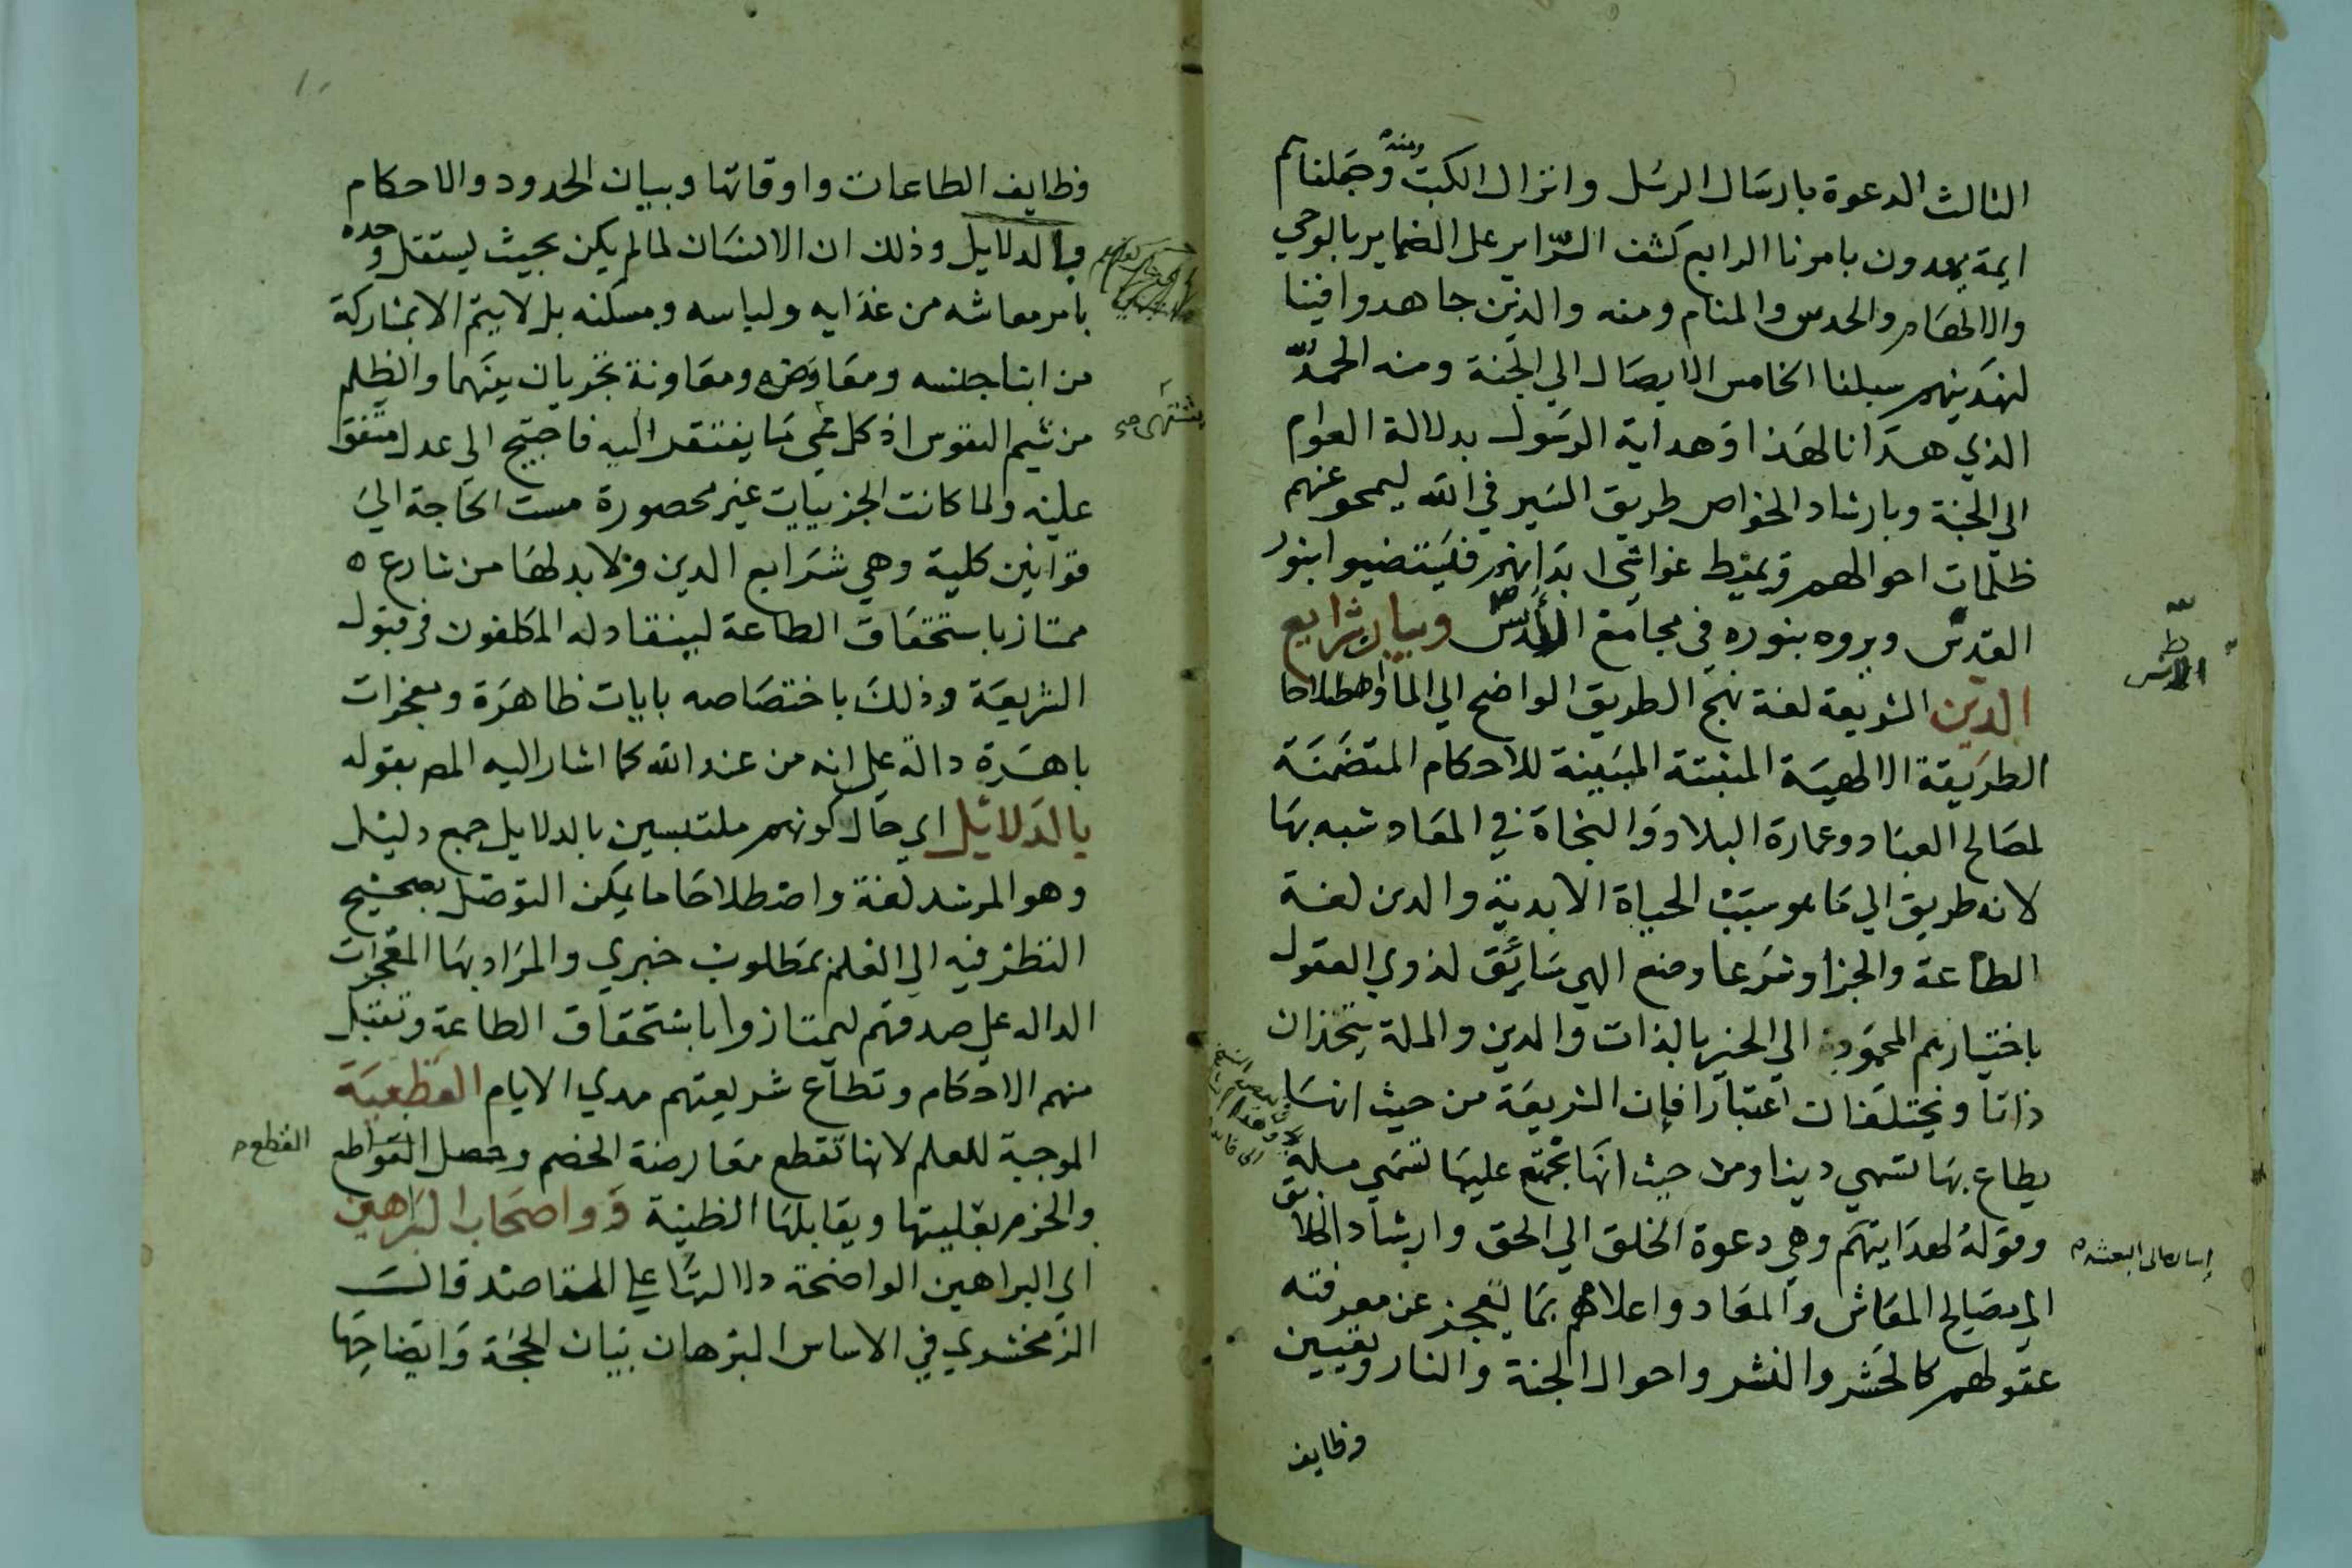 الثالث الدعوة بارسال الرسل وانزال الكتب ومنه وجعلناهم
ايمة يهدون بامرنا الرابع كشف السراير على الضماير بالوحي
والالهام والحدس والمنام ومنه والذين جاهدوا فينا
لنهدينهم سبلنا الخامس الايصال الي الجنة ومنه الحمد لله
الذي هدانا لهذا وهداية الرسول بدلالة العوام
الي الجنة وبارشاد الخواص طريق السير في الله ليمحو عنهم
ظلمات احوالهم ويميط غواشي ابدانهم فليستضيوا بنور
القدس ويروه بنوره في مجامع وبيان شرايع
الدين الشريعة لغة نهج الطريق الواضح الي الماء واصطلاحا
الطريقة الالهية المثبتة المبينة للاحكام المتضمنة
لمصالح العباد وعمارة البلاد والنجاة في المعاد شبه بها
لانه طريق الي ما هو سبب الحياة الابدية والدين لغة
الطاعة والجزا وشرعا وضع الهي سايق لذوي العقول
باختيارهم المحمود الي الخير بالذات والدين والملة يتحذان
ذاتا ويختلفان اعتبارا فان الشريعة من حيث انها
يطاع بها تسمي دينا ومن حيث انها تجتمع عليها تسمي ملة
وقوله لهدايتهم وهي دعوة الخلق الي الحق وارشاد الخلايق
الي مصالح المعاش والمعاد واعلامهم بما تعجز عن معرفته
عقولهم كالحشر والنشر واحوال الجنة والنار وتعيين
وظايف
وظايف الطاعات واوقاتها وبيان الحدود والاحكام
بالدلايل وذلك ان الانسان لما لم يكن بحيث يستقل وحده
بامر معاشه من غذايه ولباسه ومسكنه بل لا يتم الا بمشاركة
من ابنا جنسه ومعاوضة ومعاونة تجريان بينهما والظلم
من شيم النفوس اذ كل يفتقر اليه فاحتيج الي عدل متفق
عليه ولما كانت الجزييات غير محصورة مست الحاجة الي
قوانين كلية وهي شرايع الدين ولا بد لها من شارع ه
ممتاز باستحقاق الطاعة لينقاد له المكلفون في قبول
الشريعة وذلك باختصاصه بايات ظاهرة ومعجزات
باهرة دالة علي انه من عند الله كما اشار اليه المص بقوله
بالدلايل اي حال كونهم ملتبسين بالدلايل جمع دليل
وهو المرشد لغة واصطلاحا ما يمكن التوصل بصحيح
النظر فيه الي العلم بمطلوب خبري والمراد بها المعجزات
الداله علي صدقهم ليمتازوا باستحقاق الطاعة وتقبل
منهم الاحكام وتطاع شريعتهم مدي الايام القطعية
الموجبة للعلم لانها تقطع معارضة الخصم وحصل القواطع
القطع
والجزم بغلبتها ويقابلها الظنية وواضحات البراهين
اي البراهين الواضحة دلالتها علي المقاصد قالت
الزمخشري في الاساس البرهان بيان الحجة وايضاحها